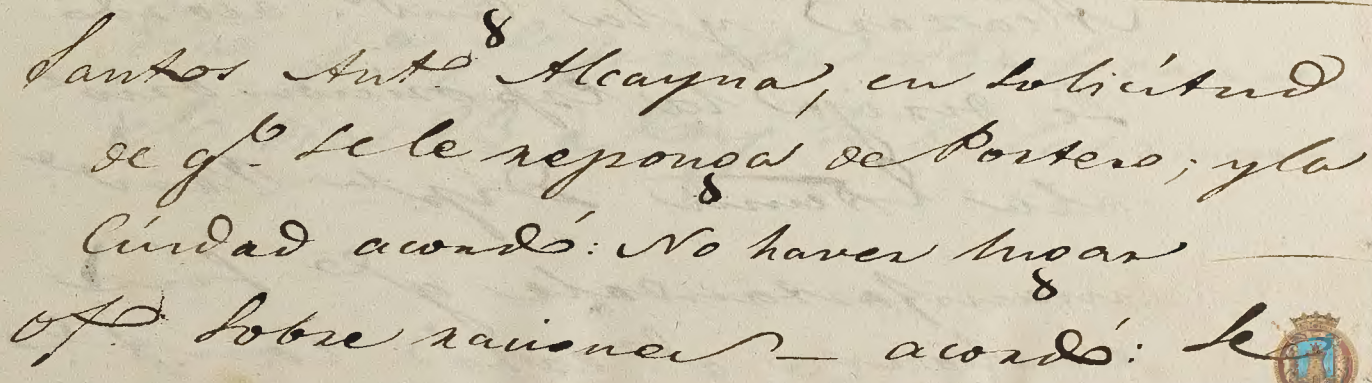 Santos Ant.º Alcayna, en solicitud
de q.e se le reponga de Portero; y la
Ciudad acordó: No haver lugar
of.º sobre raciones — acordó: Se